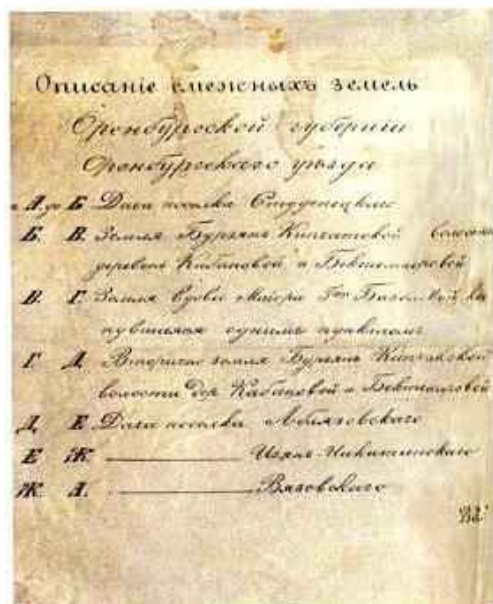 Описаніе смежныхъ земель
Оренбургской губерніи
Оренбургскаго уѣзда
А. до Б. Дача поселка Студенецкаго
Б. В. Земля Бурзянъ Кипчатской волости
деревень Кабановой и Бектемировой
В. Г. Земля вдовы Маіора
однимъ пунктомъ
Г. Д. Вторично земля Бурзянъ Кипчакской
волости дер Кабановой и Бектемировой
Д. Е. Дача поселка Аблязовскаго
Е Ж. Никитинскаго
Ж. А. Вязовскаго